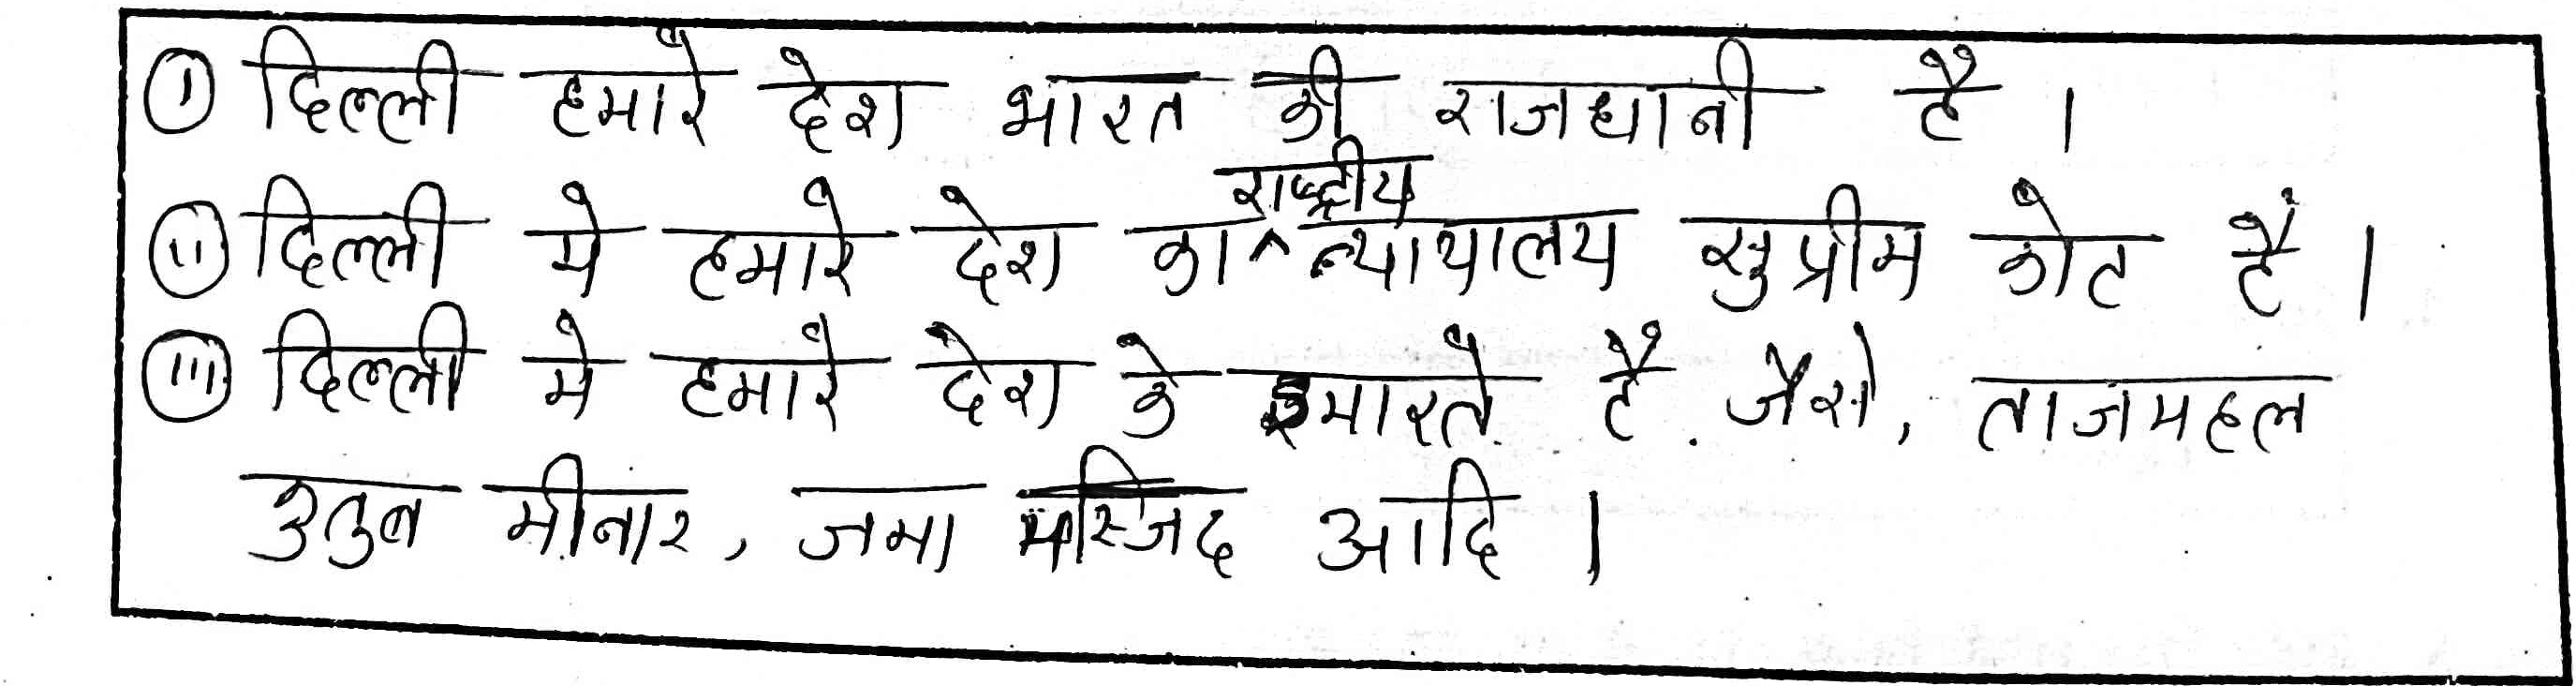 (i) दिल्ली हमारे देश भारत की राजधानी है ।
(ii) दिल्ली मे हमारे देश का ^ राष्ट्रीय न्यायालय सुप्रीम कोट है ।
(iii) दिल्ली मे हमारे देश के इमारते है . जैसे, ताजमहल
कुतुब मीनार, जमा मस्जिद आदि ।